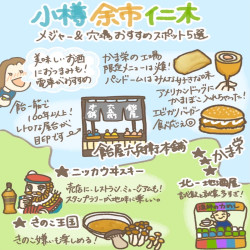 小樽 余市 仁木
メジャー&穴場おすすめスポット5選
美味しいお酒
におつまみも!
電車がおすすめ
かま栄の工場
限定メニューは爆!
パンドームはみんな好きな味
アメリカンドッグに
かまぼこ入れちゃった!
エビカツバーガー
食べ応え◎
飴一筋で
100年以上!
レトロな看板が
目印です
飴屋六兵衛本舗
かま栄
ニッカウヰスキー
売店にレストラン、ミュージアムも!
スタンプラリーが地味に楽しい
きのこ王国
きのこ狩りも楽しめる!
北一地酒屋